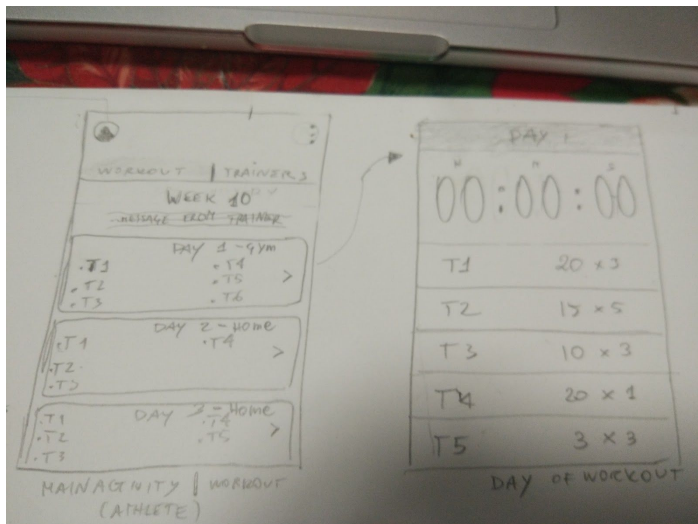 WORKOUT | TRAINERS
WEEK 10
MESSAGE FROM TRAINER
DAY 1 - Gym
.T1 .T4
.T2 .T5
.T3 .T6
>
DAY 2 - Home
.T1 .T4
.T2
.T3
>
DAY 3 - Home
.T1 .T4
.T2 .T5
.T3
>
MAINACTIVITY | WORKOUT
(ATHLETE)
1
DAY 1
H M S
00:00:00
T1 20 x 3
T2 15 x 5
T3 10 x 3
T4 20 x 1
T5 3 x 3
DAY OF WORKOUT